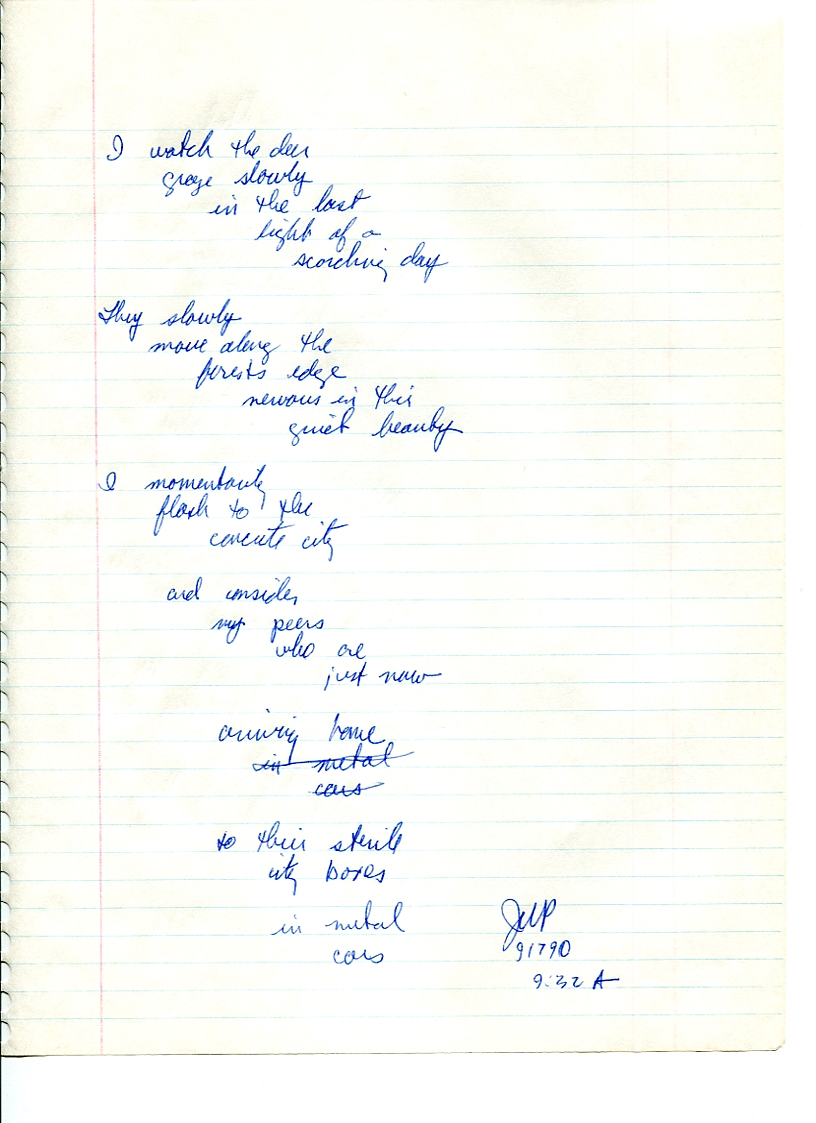 I watch the deer
graze slowly
in the last
light of a
scorching day
They slowly
move along the
forests edge
nervous in this
quiet beauty
I momentarily
flash to the
concrete city
and consider
my peers
who are
just now
arriving home
in metal
cars
to their sterile
city boxes
in metal
cars
JWP
91790
9:32 A